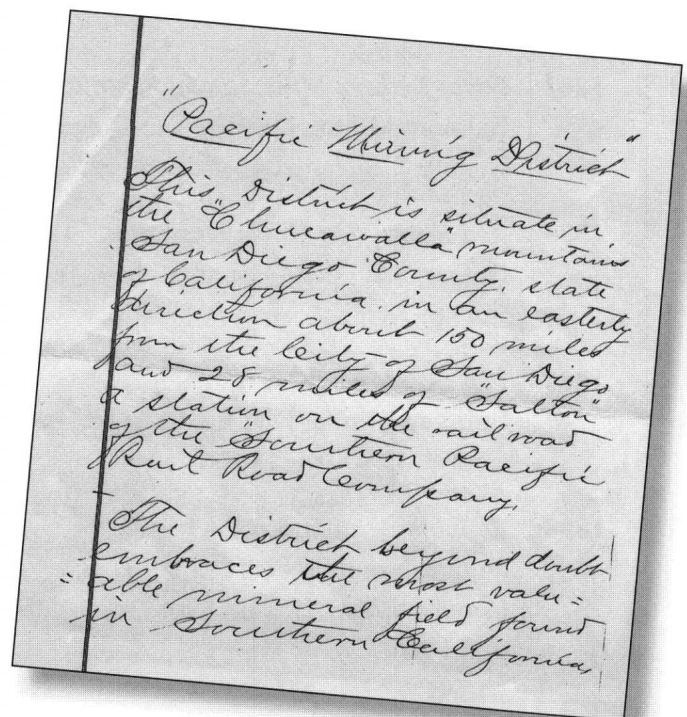 "Pacific Mining District"
This District is situate in
the "Chucawalla" mountains
San Diego County, state
of California. in an easterly
direction about 150 miles
from the City of San Diego
and 28 miles of "Salton"
a station on the railroad
of the "Southern Pacific
Rail Road Company.
The District beyond doubt
embraces the most valu=
=able mineral field found
in Southern California,